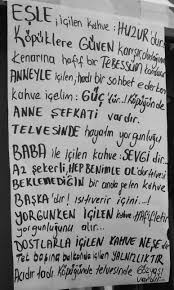 EŞLE, içilen kahve: HUZUR'dur
Köpüklere GÜVEN karışır
kenarına hafif bir TEBESSÜM
ANNEYLE içilen, hadi bir sohbet edelim
kahve içelim: GÜÇ'tür..! Köpüğünde
ANNE ŞEFKATİ vardır.
TELVESİNDE hayatın yorgunluğu
BABA ile içilen kahve: SEVGİ dir...
Az şekerli, HEP BENİMLE OL'dur
BEKLEMEDİĞİN bir anda gelen kahve
BAŞKA'dır! ısıtıverir içini...!
YORGUNKEN İÇİLEN kahve Hafifletir
yorgunluğunu alır...
DOSTLARLA İÇİLEN KAHVE NEŞE'dir
Tek başına balkonda içilen YALNIZLIKTIR
Acıdır tadı. Köpüğünde telvesinde
vardır...